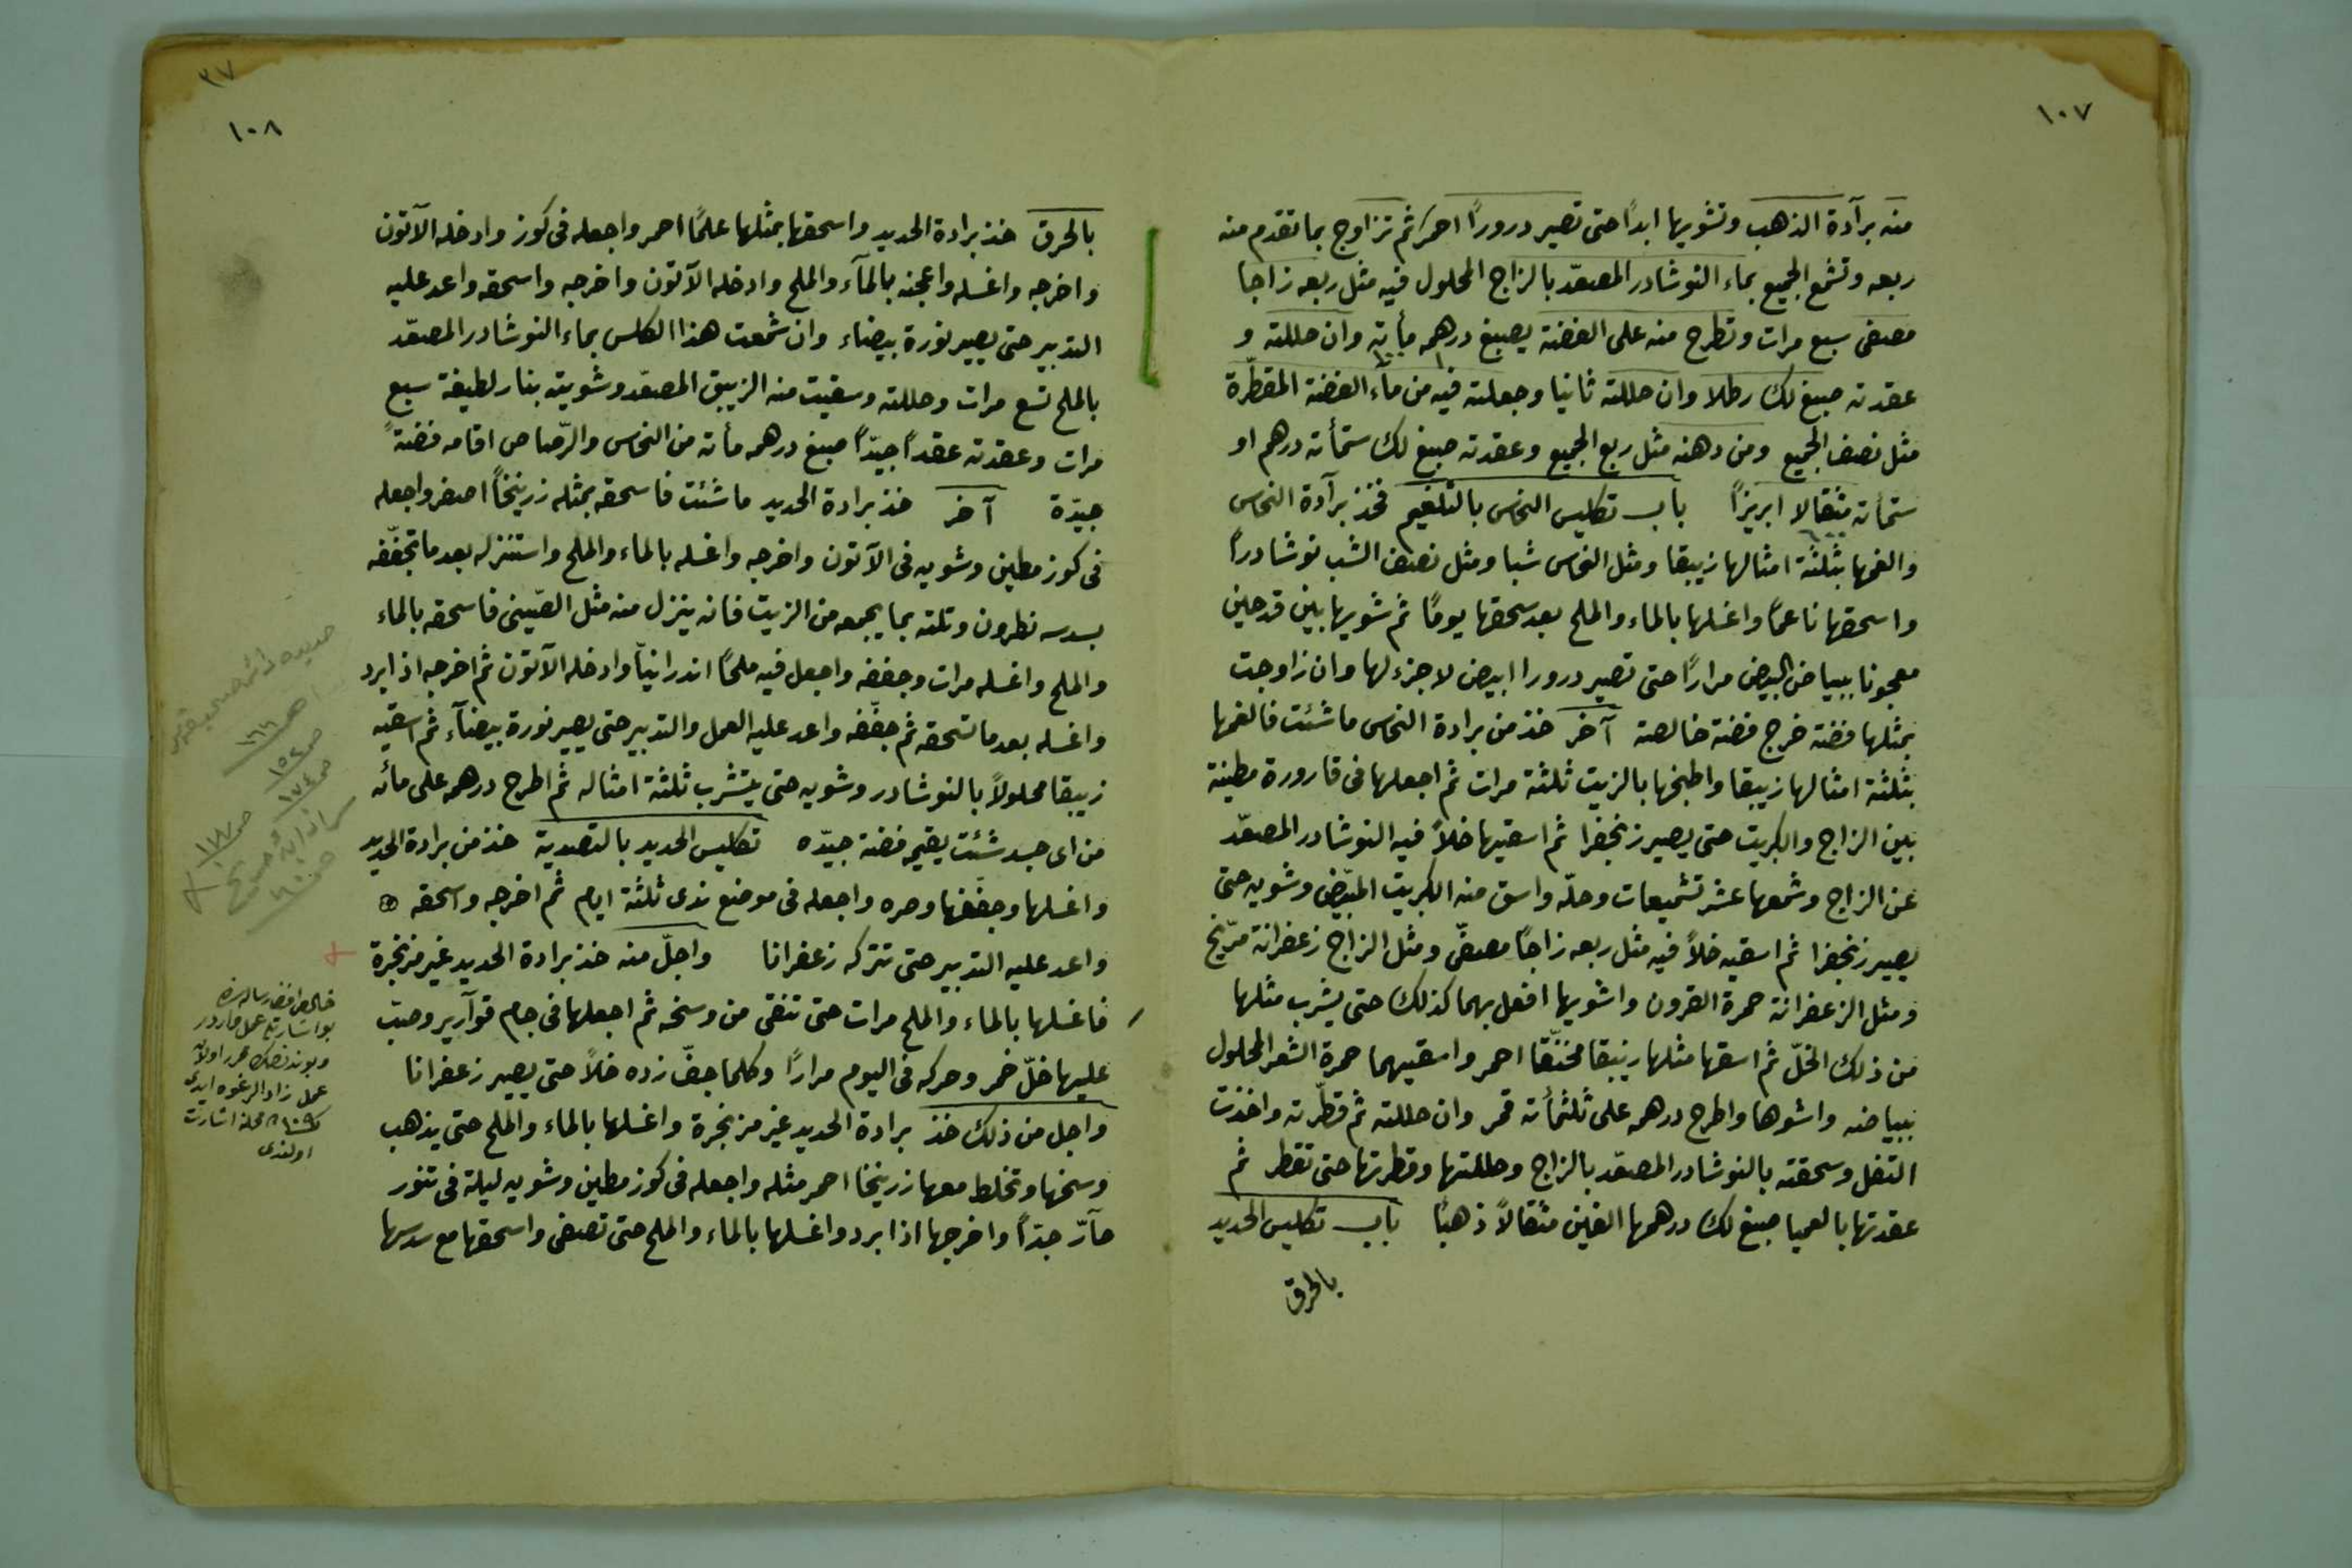 ١٠٧
منه برآدة الذهب وتشويها ابدًا حتى تصير درورًا احمرَ ثم تزاوج بما تقدم منه
ربعه وتشمع الجميع بماء النوشادر المصعّد بالزاج المحلول فيه مثل ربعه زاجا
مصفى سبع مرات وتطرح منه على الفضة يصبغ درهمه مأية وان حللته و
عقدته صبغ لك رطلا وان حللته ثانيا وجعلته فيه من مآء الفضة المقطّرة
مثل نصف الجميع ومن دهنه مثل ربع الجميع وعقدته صبغ لك ستمأته درهم او
ستمأته مثقالا ابريزًا باب تكليس النحاس بالتلغيم فخذ برآدة النحاس
والغمها بثلثة امثالها زيبقا ومثل النحاس شبا ومثل نصف الشب نوشادرًا
واسحقها ناعمًا واغسلها بالماء والملح بعد سحقها يومًا ثم شويها بين قدحين
معجونا ببياض البيض مرارًا حتى تصير درورا ابيض لا جزء لها وان زاوجت
بمثلها فضة خرج فضة خالصة آخر خذ من برادة النحاس ما شئت فالغمها
بثلثة امثالها زيبقا واطبخها بالزيت ثلثة مرات ثم اجعلها فى قارورة مطينة
بين الزاج والكبريت حتى يصير زنجفرا ثم اسقيها خلاً فيه النوشادر المصعّد
عن الزاج وشمعها عشر تشميعات وحلّه واسق منه الكبريت المبيّض وشويه حتى
يصير زنجفرا ثم اسقيه خلاً فيه مثل ربعه زاجًا مصفىّ ومثل الزاج زعفرانة مرّيخ
ومثل الزعفرانة حمرة القرون واشويها افعل بهما كذلك حتى يشرب مثلها
من ذلك الخلّ ثم اسقها مثلها زيبقا مخنّقا احمر واسقيهما حمرة الشعر المحلول
ببياضه واشوها واطرح درهمه على ثلثمأته قمر وان حللته ثم قطّرته واخذت
الثفل وسحقته بالنوشادر المصعّد بالزاج وحللتها وقطرتها حتى تقطر ثم
عقدتها بالعميا صبغ لك درهمها الفين مثقالاً ذهبًا باب تكليس الحديد
بالحرق
٣٧
١٠٨
بالحرق خذ برادة الحديد واسحقها بمثلها علمًا احمر واجعله فى كوز وادخله الآتون
واخرجه واغسله واعجنه بالمآء والملح وادخله الآتون واخرجه واسحقه واعد عليه
التدبير حتى يصير نورة بيضاء وان شمعت هذا الكلس بماء النوشادر المصعّد
بالملح تسع مرات وحللته وسقيت منه الزيبق المصعّد وشويته بنار لطيفة سبع
مرات وعقدته عقدًا جيّدًا صبغ درهمه مأته من النحاس والرّصاص اقامه فضةً
جيّدة آخر خذ برادة الحديد ما شئت فاسحقه بمثله زرينخًا اصفر واجعله
فى كوز مطين وشويه فى الآتون واخرجه واغسله بالماء والملح واستنزله بعد ما تجفّفه
بسدسه نطرون وتلته بما يجمعه من الزيت فانه ينزل منه مثل الصّينى فاسحقه بالماء
والملح واغسله مرات وجففه واجعل فيه ملحًا اندرانيّا وادخله الآتون ثم اخرجه اذا برد
واغسله بعد ما تسحقه ثم جفّفه واعد عليه العمل والتدبير حتى يصير نورة بيضآء ثم اسقيه
زيبقا محلولاً بالنوشادر وشويه حتى يتشرب ثلثة امثاله ثم اطرح درهمه على مأته
من اى جسد شئت يقيمه فضة جيّده تكليس الحديد بالتصدية خذ من برادة الحديد
واغسلها وجفّفها وصره واجعله فى موضع ندى ثلثة ايام ثم اخرجه واسحقه
واعد عليه التدبير حتى تتركه زعفرانا واجلّ منه خذ برادة الحديد غير مزنجرة
فاغسلها بالماء والملح مرات حتى تنقى من وسخه ثم اجعلها فى جام قوآرير وصبّ
عليها خلّ خمر وحركه فى اليوم مرارًا وكلما جفّ زده خلاً حتى يصير زعفرانا
واجل من ذلك خذ برادة الحديد غير مزنجرة واغسلها بالماء والملح حتى يذهب
وسخها وتخلط معها زرينخا احمر مثله واجعله فى كوز مطين وشويه ليلة فى تنور
حآرّ جدّاً واخرجها اذا برد واغسلها بالماء والملح حتى تصفى واسحقها مع سدسها
ص ١٥٢
ص ١٧٤
ص ١٨٧
بو اشارتلى عمل واردر
اشارت
اولندى